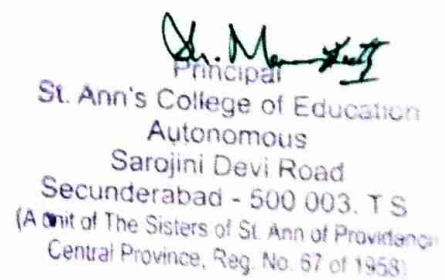 Principal
St. Ann's College of Education
Autonomous
Sarojini Devi Road
Secunderabad - 500 003. T S
(A unit of The Sisters of St. Ann of Providence
Central Province, Reg. No. 67 of 1958)